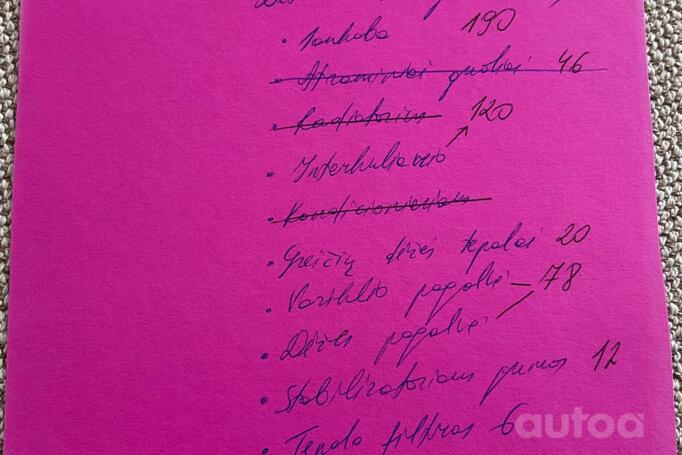 • Sankaba 190
• Atraminiai guoliai 46
• Radiatorius
120
• Interkulerio
• Kondicionieriaus
• Greičių dėžės tepalai 20
• Variklio pagalvė – 78
• Dėžės pagalvė
• Stabilizatoriaus gumos 12
• Tepalo filtras 6
autoa